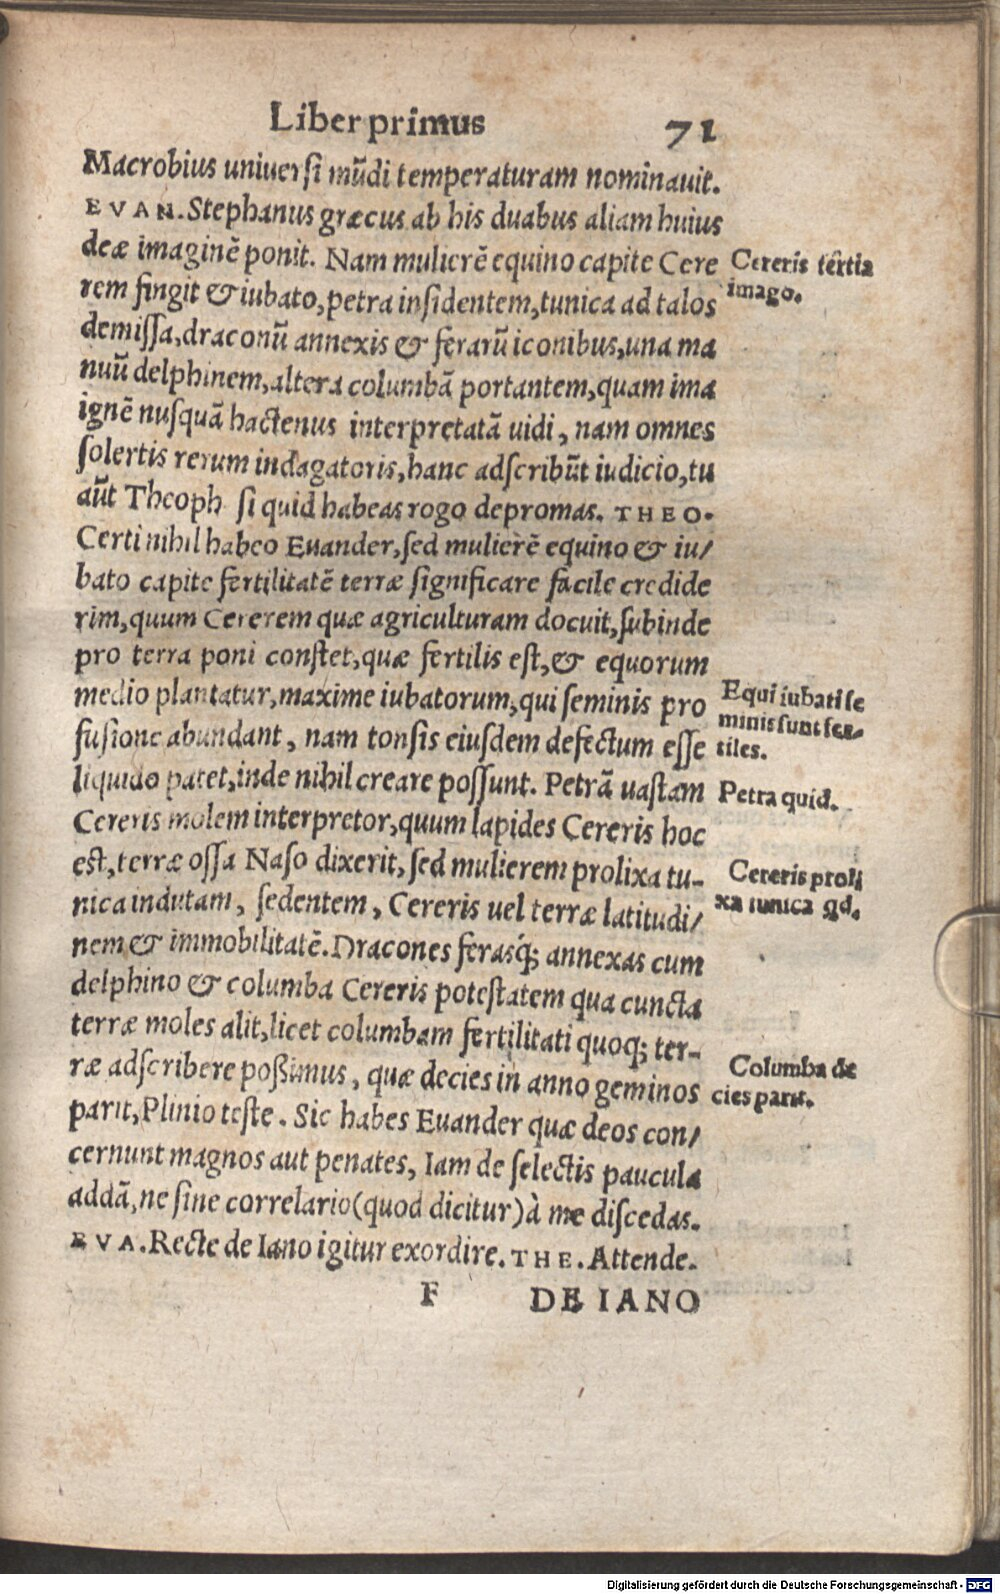 Liber primus 71
Macrobius universi mũdi temperaturam nominavit.
EVAN. Stephanus græcus ab his duabus aliam huius
deæ imaginẽ ponit. Nam mulierẽ equino capite Cere
rem fingit & iubato, petra insidentem, tunica ad talos
demissa, draconũ annexis & ferarũ iconibus, una ma
nuũ delphinem, altera columbã portantem, quam ima
ignẽ nusquã hactenus interpretatã uidi, nam omnes
solertis rerum indagatoris, hanc adscribũt iudicio, tu
aũt Theoph si quid habeas rogo depromas. THEO.
Certi nihil habeo Euander, sed mulierẽ equino & iu/
bato capite fertilitatẽ terræ significare facile credide
rim, quum Cererem quæ agriculturam docuit, subinde
pro terra poni constet, quæ fertilis est, & equorum
medio plantatur, maxime iubatorum, qui seminis pro
fusione abundant, nam tonsis eiusdem defectum esse
liquido patet, inde nihil creare possunt. Petrã uastam
Cereris molem interpretor, quum lapides Cereris hoc
est, terræ ossa Naso dixerit, sed mulierem prolixa tu-
nica indutam, sedentem, Cereris uel terræ latitudi/
nem & immobilitatẽ. Dracones ferasq́; annexas cum
delphino & columba Cereris potestatem qua cuncta
terræ moles alit, licet columbam fertilitati quoq; ter-
ræ adscribere possimus, quæ decies in anno geminos
parit, Plinio teste. Sic habes Euander quæ deos con/
cernunt magnos aut penates, Iam de selectis paucula
addã, ne sine correlario (quod dicitur) à me discedas.
EVA. Recte de Iano igitur exordire. THE. Attende.
F DE IANO
Cereris tẽrtia
imago.
Equi iubati se
minis sunt fer-
tiles.
Petra quid.
Cereris proli
xa tunica qd.
Columba de
cies parit.
Digitalisierung gefördert durch die Deutsche Forschungsgemeinschaft - DFG